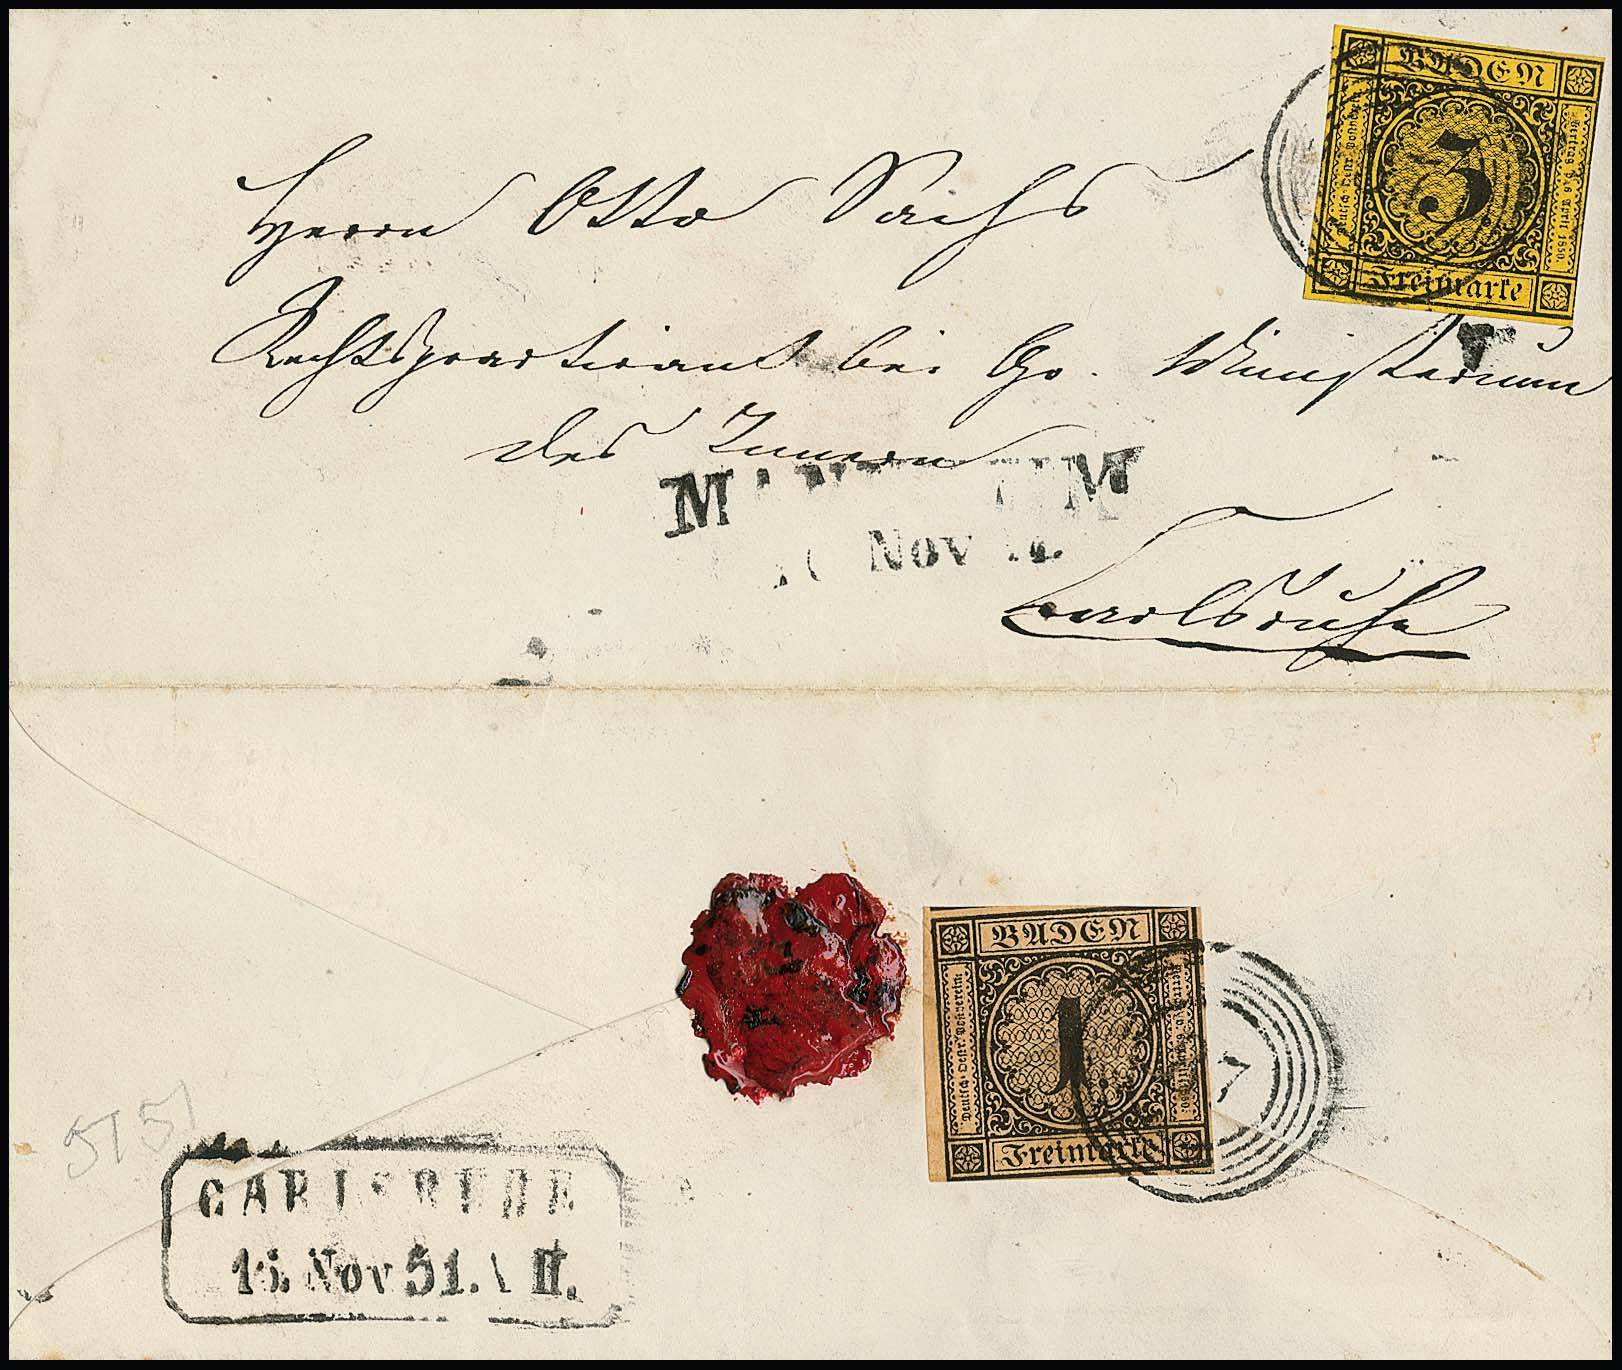 BADEN
Deutsch-Oestr. Postverein
3.
Vertrag v. 6 April 1850.
Freimarke
Herrn Otto Sachs
Rechtspractikant bei Gr. Ministerium
des Innern
MANNHEIM
Nov
Carlsruhe
BADEN
Deutsch-Oestr. Postverein
1.
Vertrag v. 6 April 1850.
Freimarke
7
51 51
CARLSRUHE
Nov 51. II.